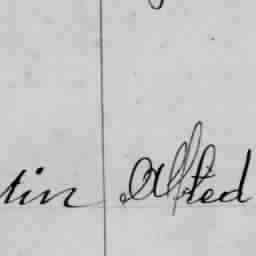 tin Alfred